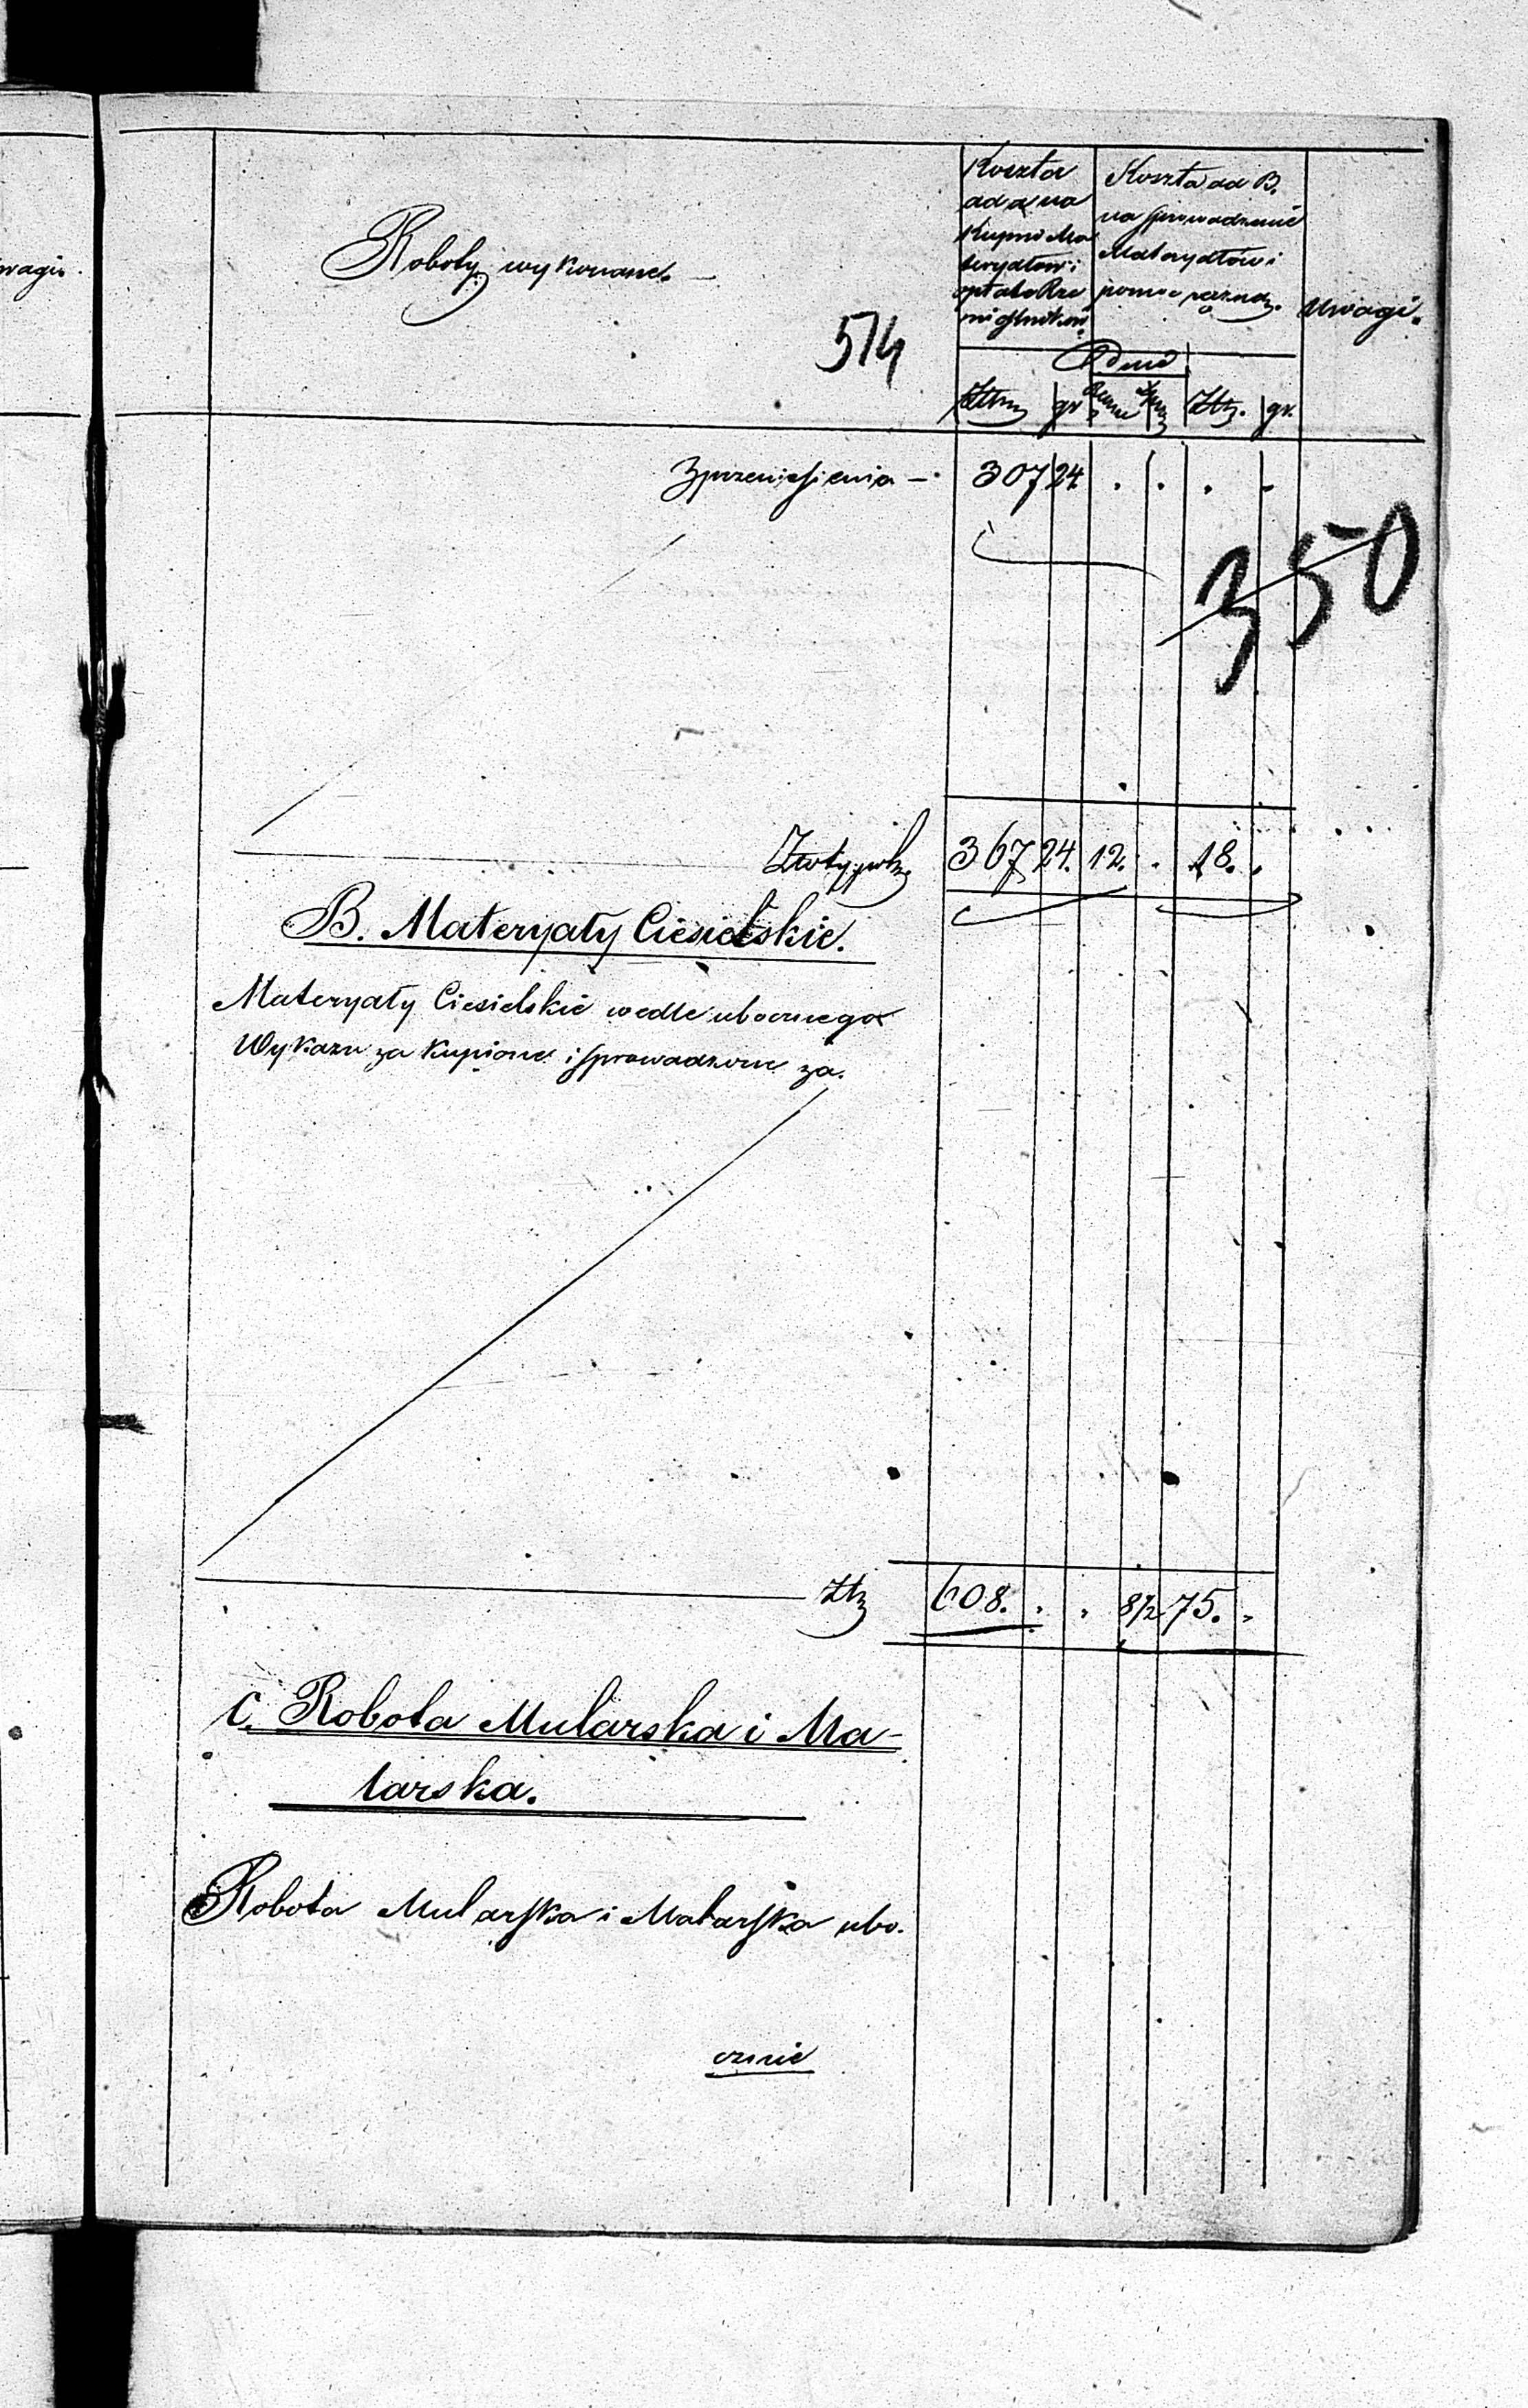 wagi.
Roboty wykonane. —
514
Koszta
ad a na
Kupno Ma
teryałów i
opłata Rze
mieślników
Koszta ad B.
na sprowadzenie
Materyałów i
pomoc ręczną.
Uwagi.
Dnie
Złtp gr Złp. gr.
Z przeniesienia — 307 24 . . . -
350
Złotych pols. 367 24. 12. . 18. .
B. Materyały Ciesielskie.
Materyały Ciesielskie wedle ubocznego
Wykazu za kupione i sprowadzone za.
Złp 608. . . 8 1/2 75. .
C. Robota Mularska i Ma-
larska.
Robota Mularska i Malarska ubo.
cznie